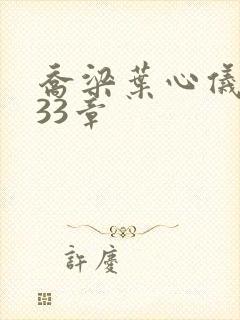 喬梁葉心儀
33章
許慶